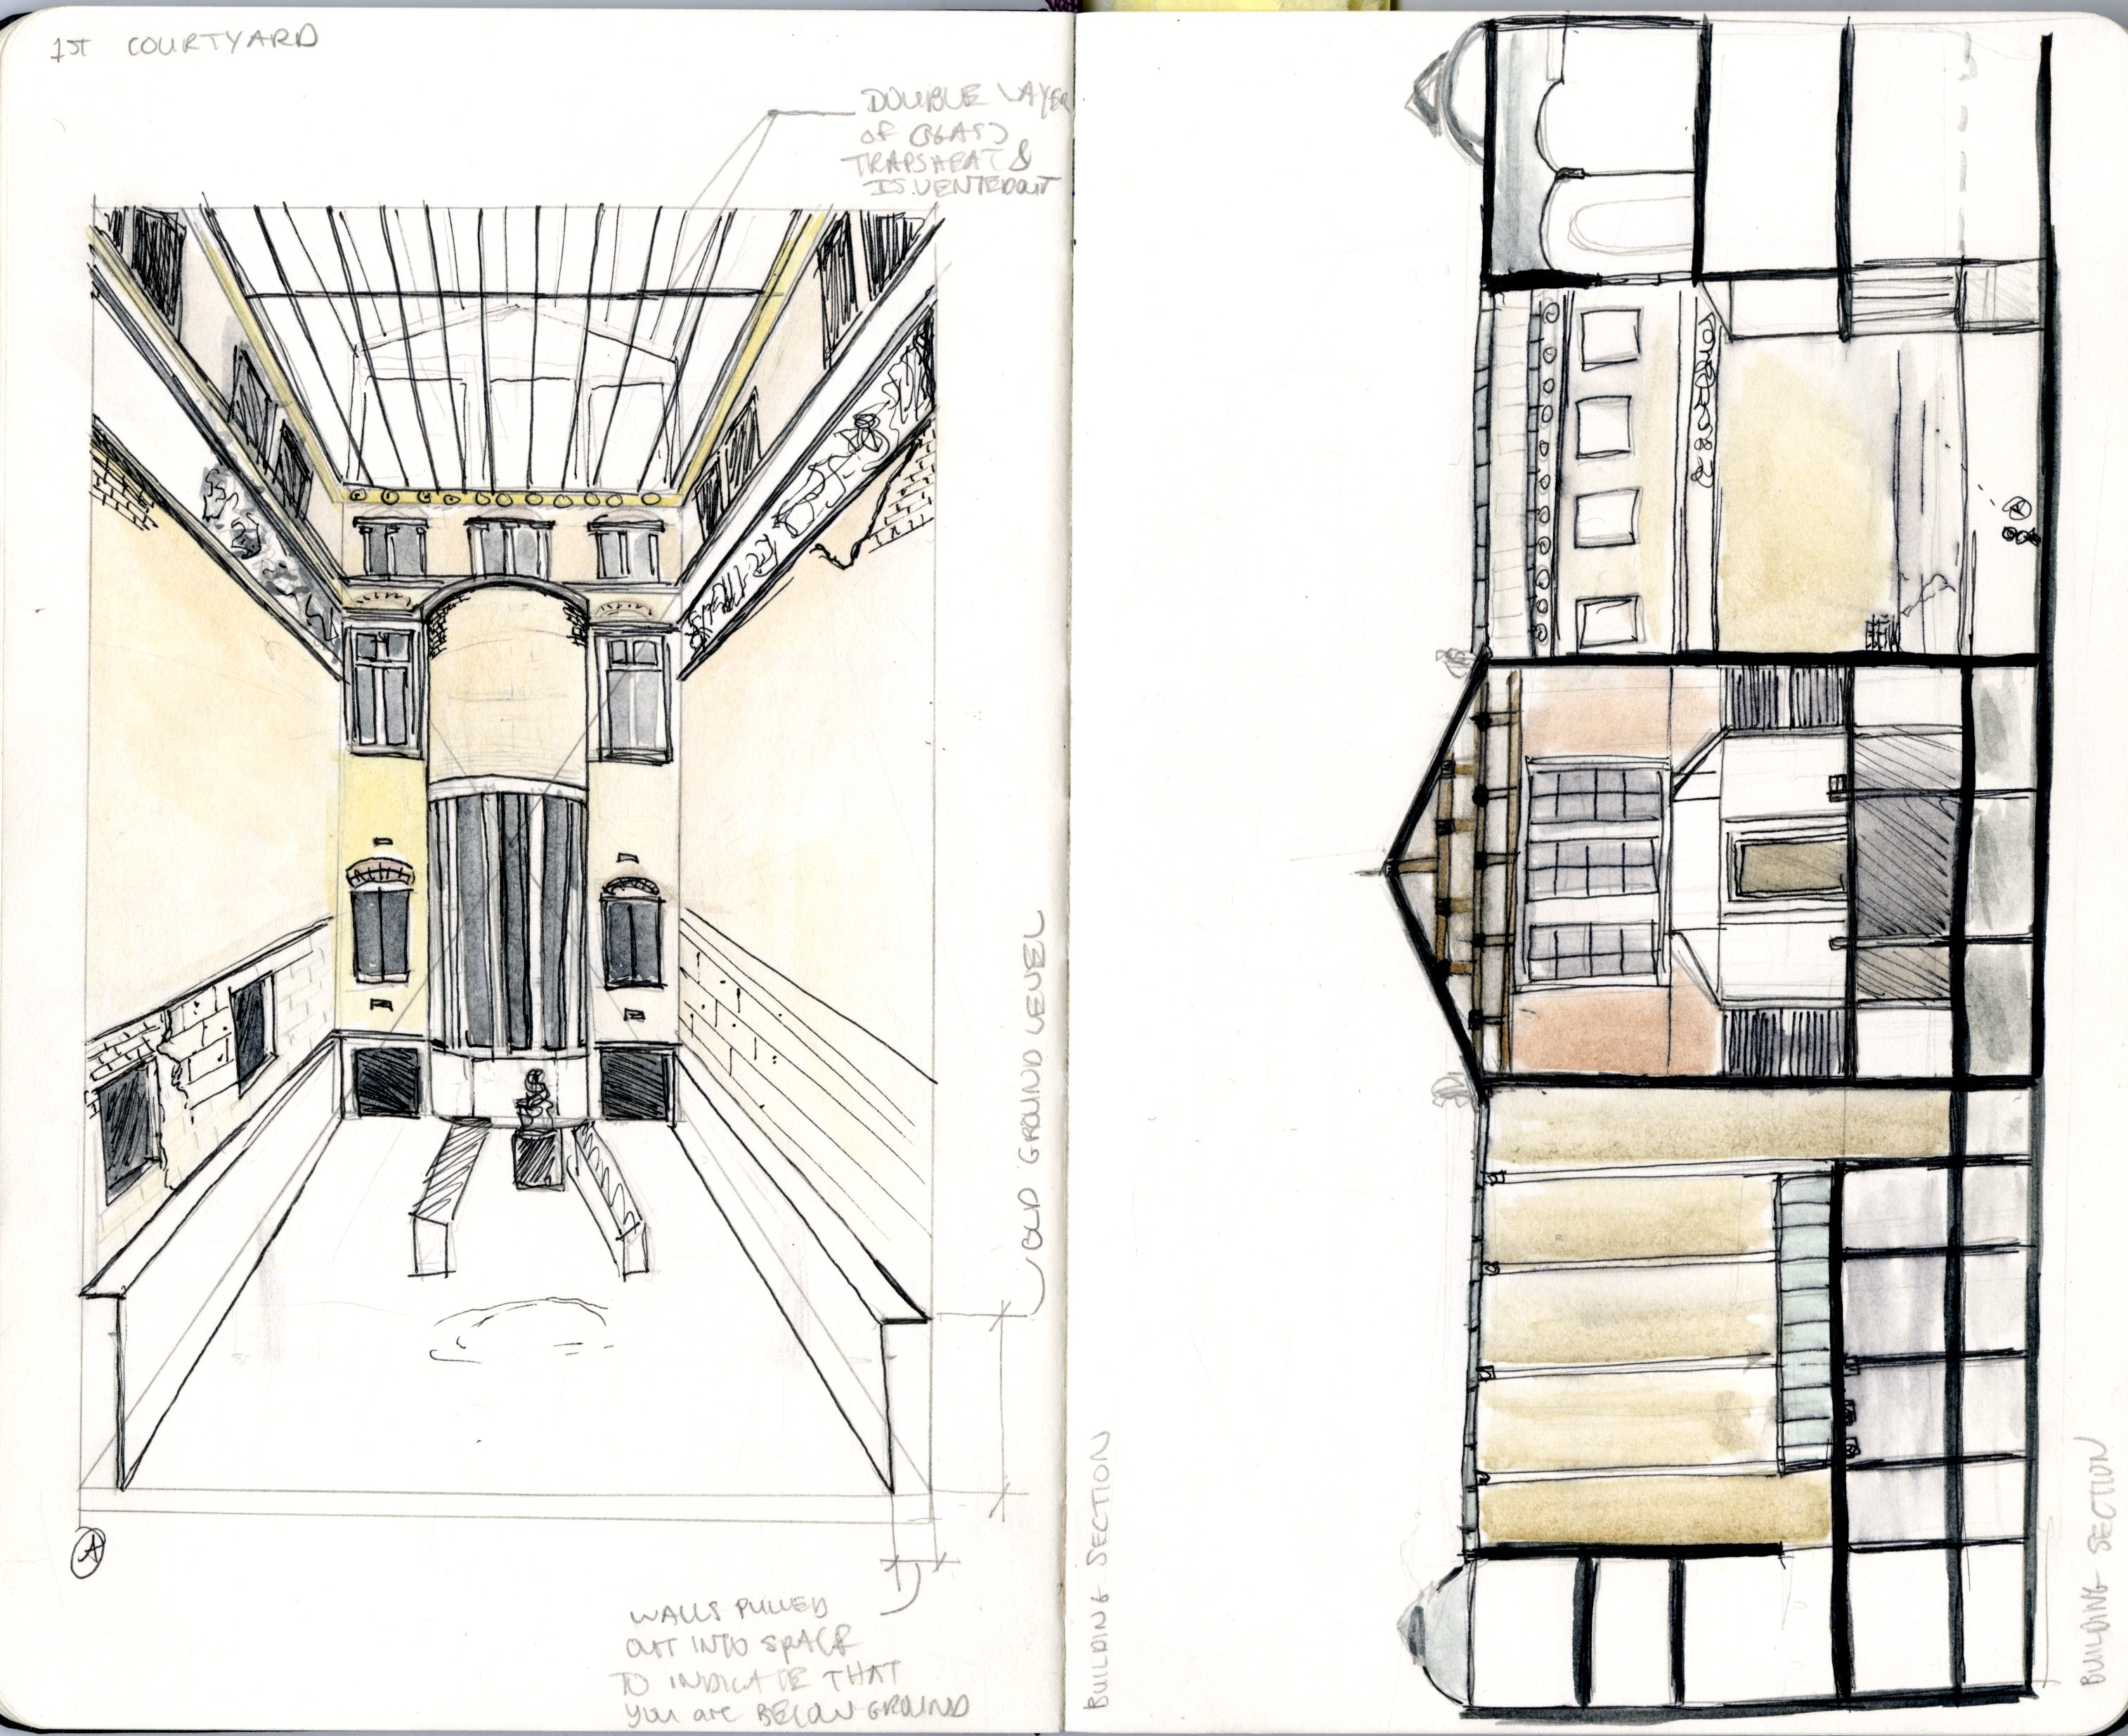 1ST COURTYARD
DOUBLE LAYER
OF GLASS
TRAPS HEAT &
IS VENTED OUT
OLD GROUND LEVEL
A
WALLS PULLED
OUT INTO SPACE
TO INDICATE THAT
YOU are BELOW GROUND
BUILDING SECTION
A
BUILDING SECTION